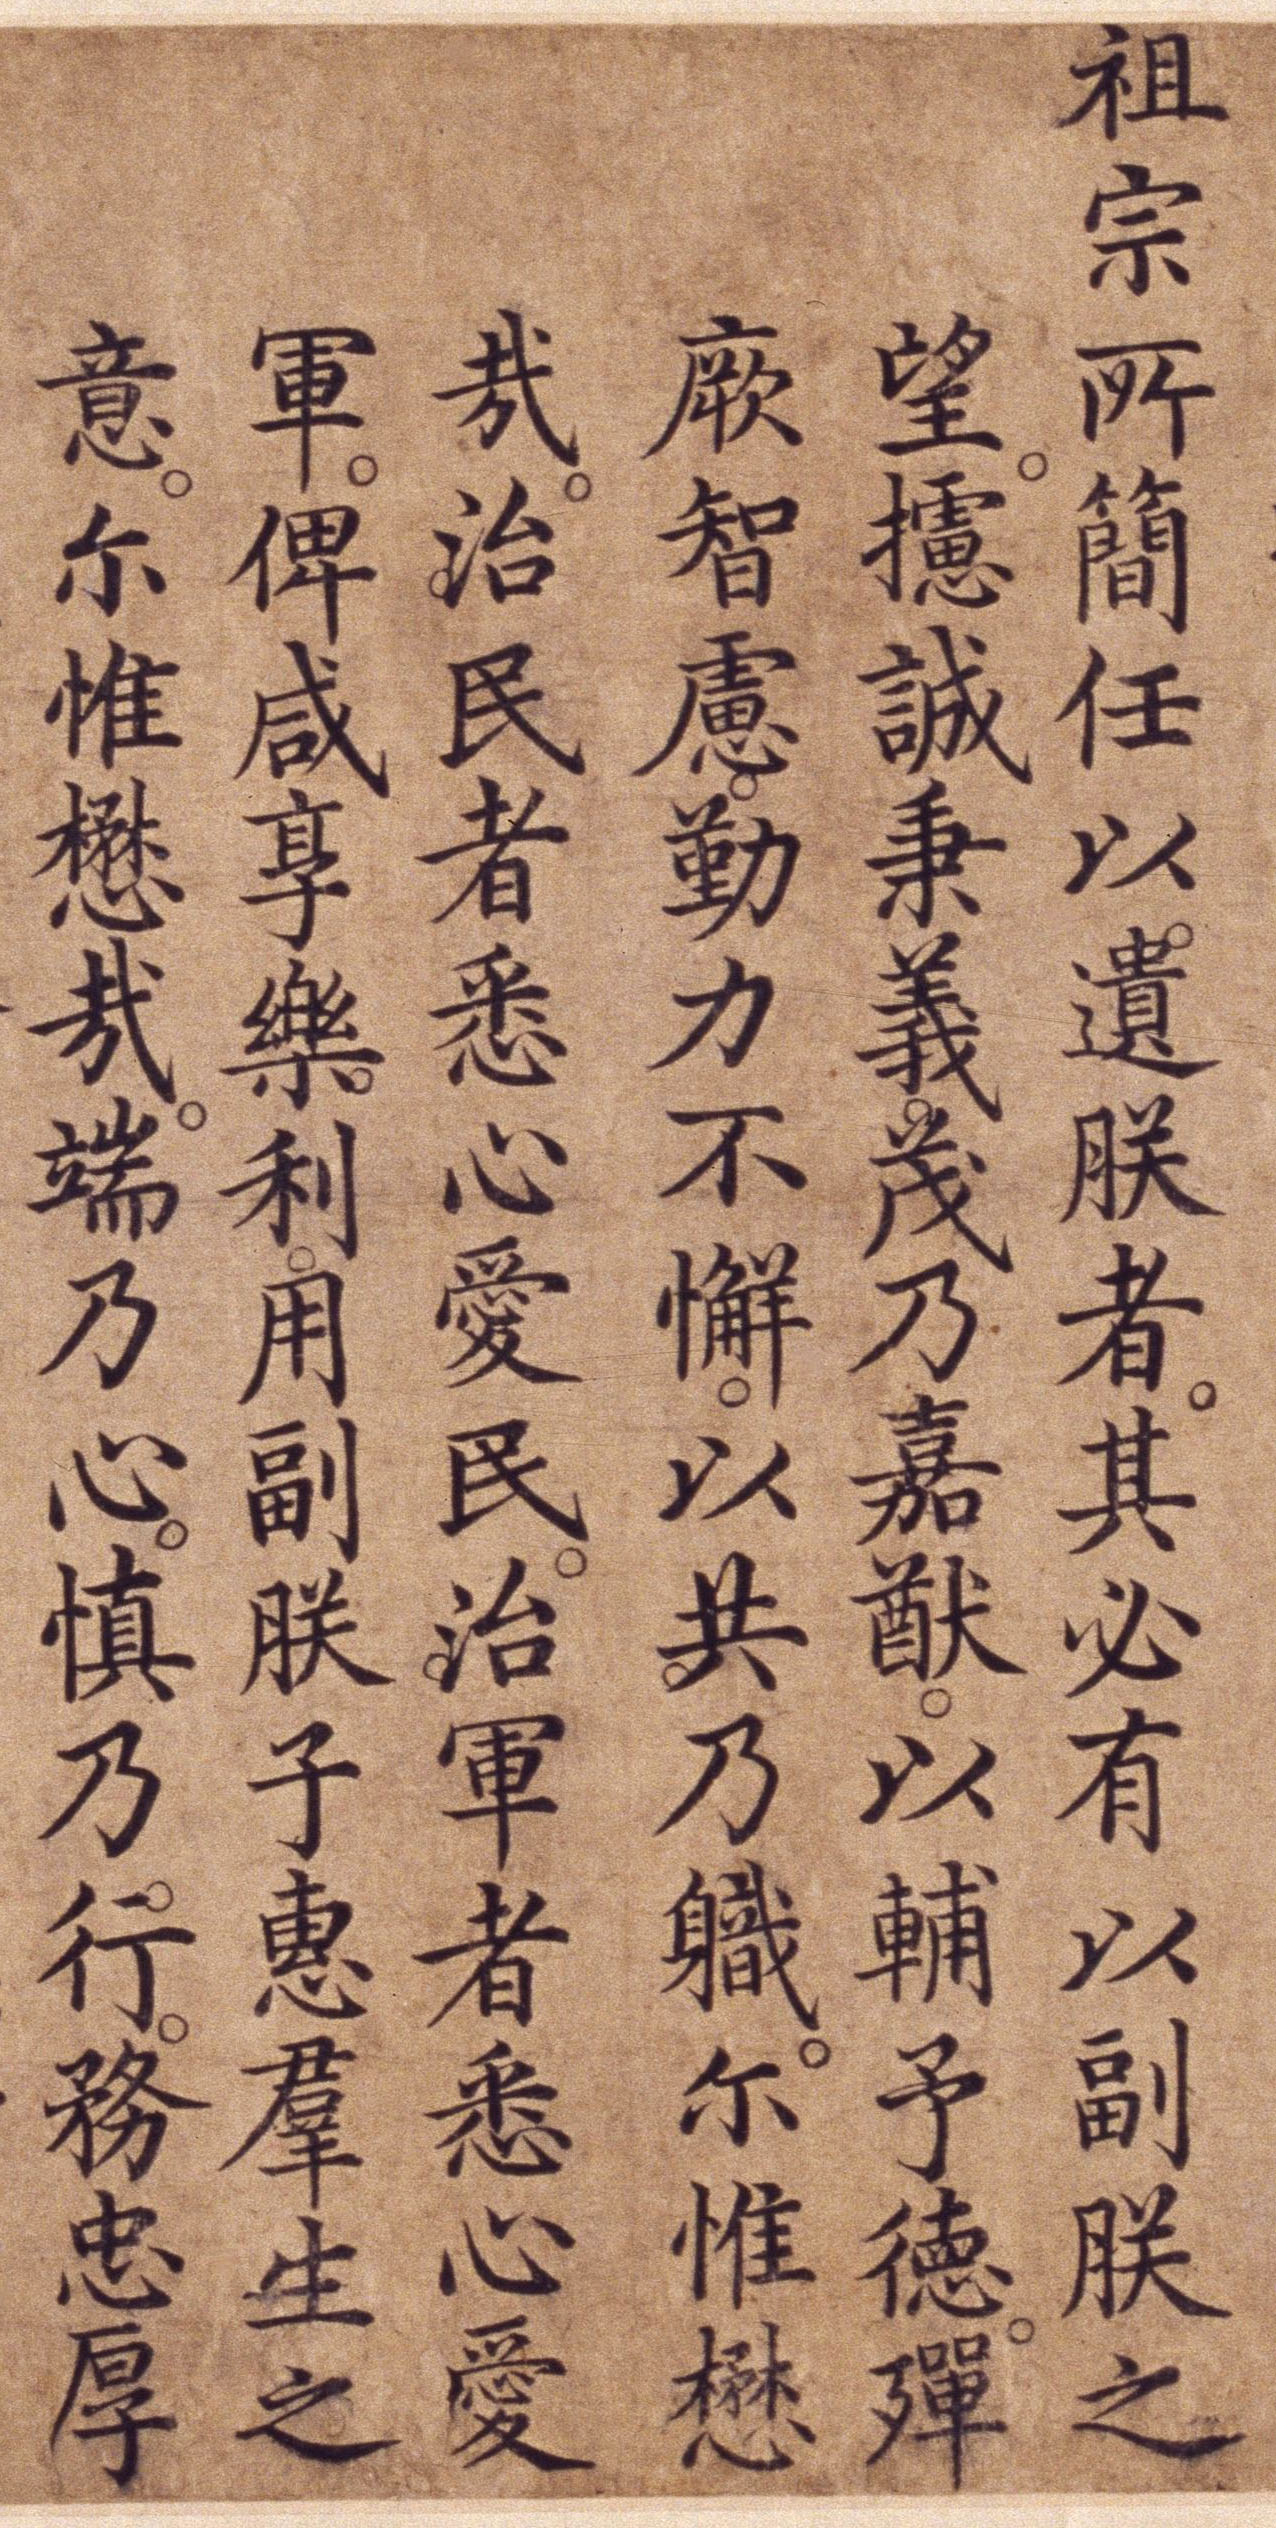 祖宗所簡任以遺朕者。其必有以副朕之
望。攄誠秉義。茂乃嘉猷。以輔予德。殫
厥智慮。勤力不懈。以共乃軄。尓惟懋
哉。治民者悉心愛民。治軍者悉心愛
軍。俾咸享樂利。用副朕子惠羣生之
意。尓惟懋哉。端乃心。慎乃行。務忠厚